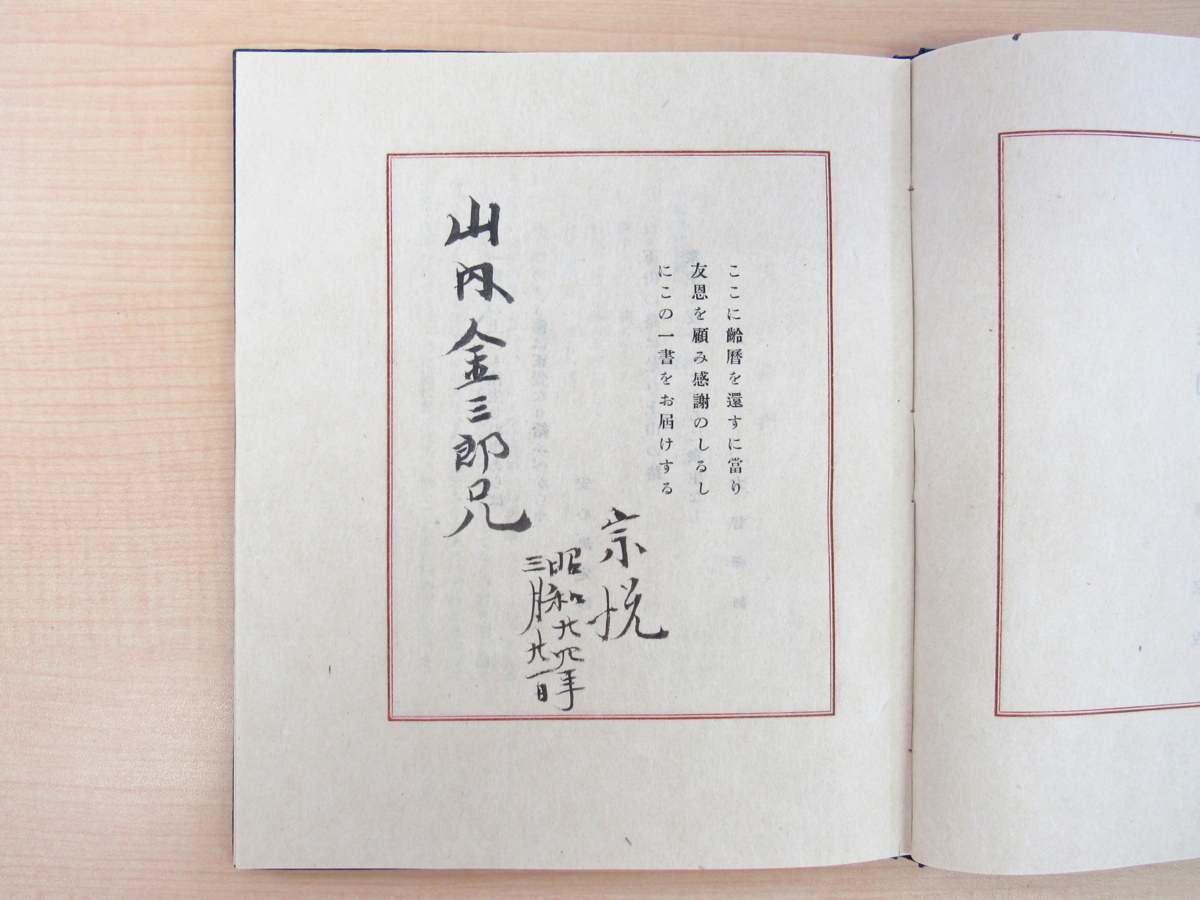 ここに齡曆を還すに當り
友恩を顧み感謝のしるし
にこの一書をお届けする
宗悦
昭和廿四年
三月廿一日
山内金三郎兄